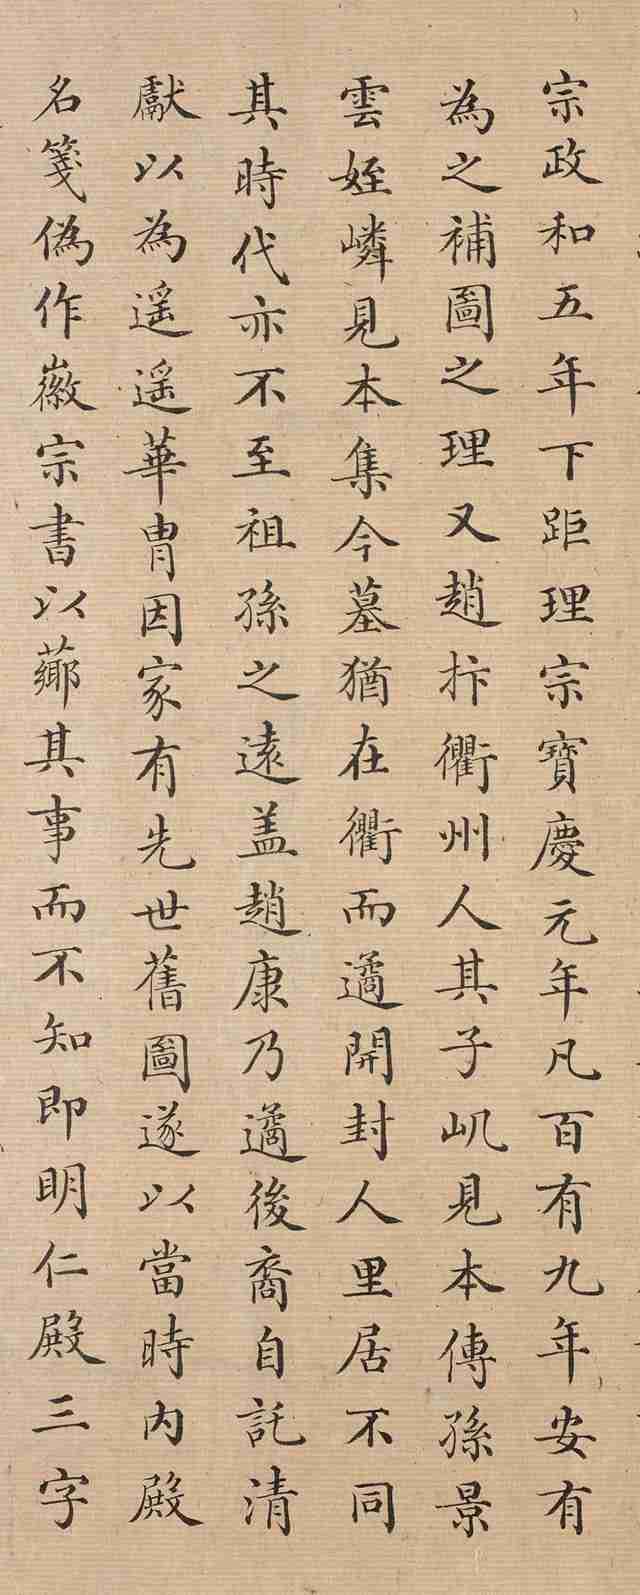 宗政和五年下距理宗寶慶元年凡百有九年安有
為之補圖之理又趙抃衢州人其子屼見本傳孫景
雲姪嶙見本集今墓猶在衢而遹開封人里居不同
其時代亦不至祖孫之遠盖趙康乃遹後裔自託清
獻以為遥遥華胄因家有先世舊圖遂以當時內殿
名箋偽作徽宗書以薌其事而不知即明仁殿三字